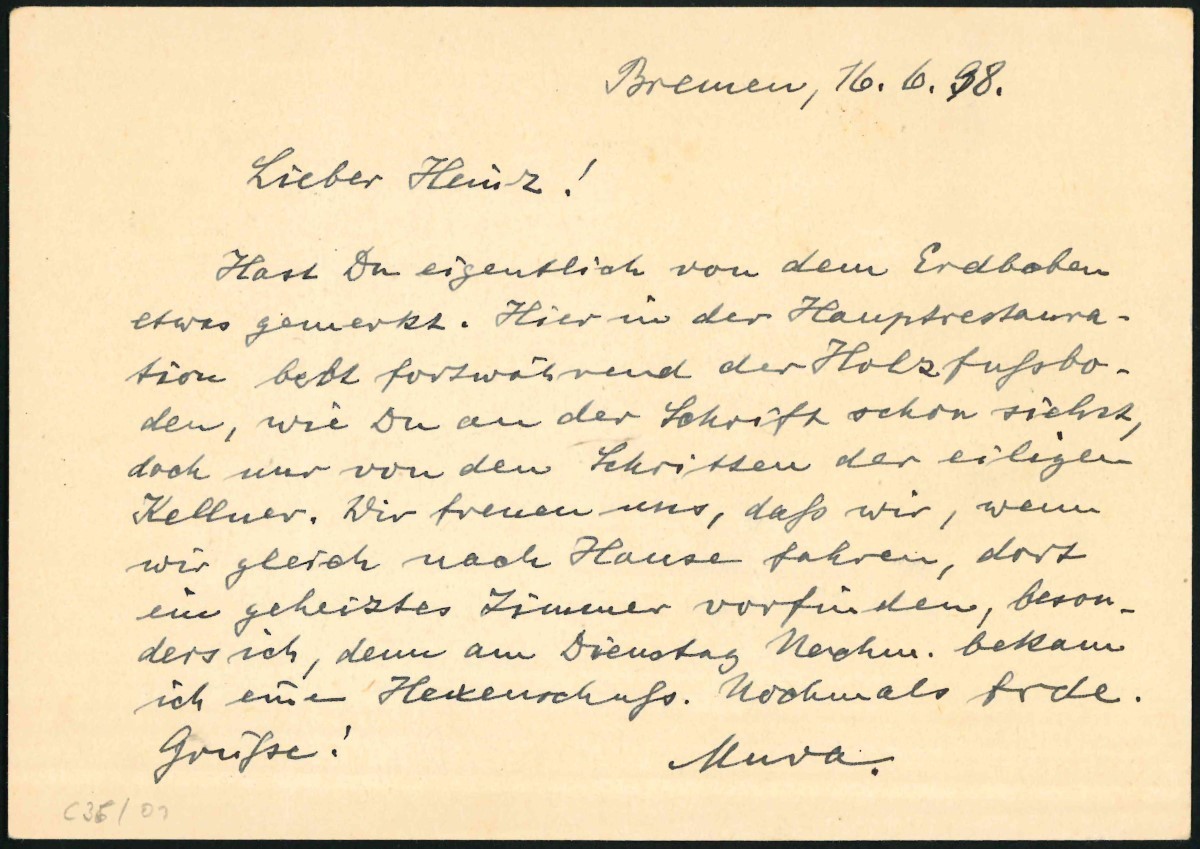 Bremen, 16. 6. 38.
Lieber Heinz!
Hast Du eigentlich von dem Erdbeben
etwas gemerkt. Hier in der Hauptrestaura-
tion bebt fortwährend der Holzfußbo-
den, wie Du an der Schrift schon siehst,
doch nur von den Schritten der eiligen
Kellner. Wir freuen uns, daß wir, wenn
wir gleich nach Hause fahren, dort
ein geheiztes Zimmer vorfinden, beson-
ders ich, denn am Dienstag Nachm. bekam
ich einen Hexenschuß. Nochmals frdl.
Grüße!
C35/01